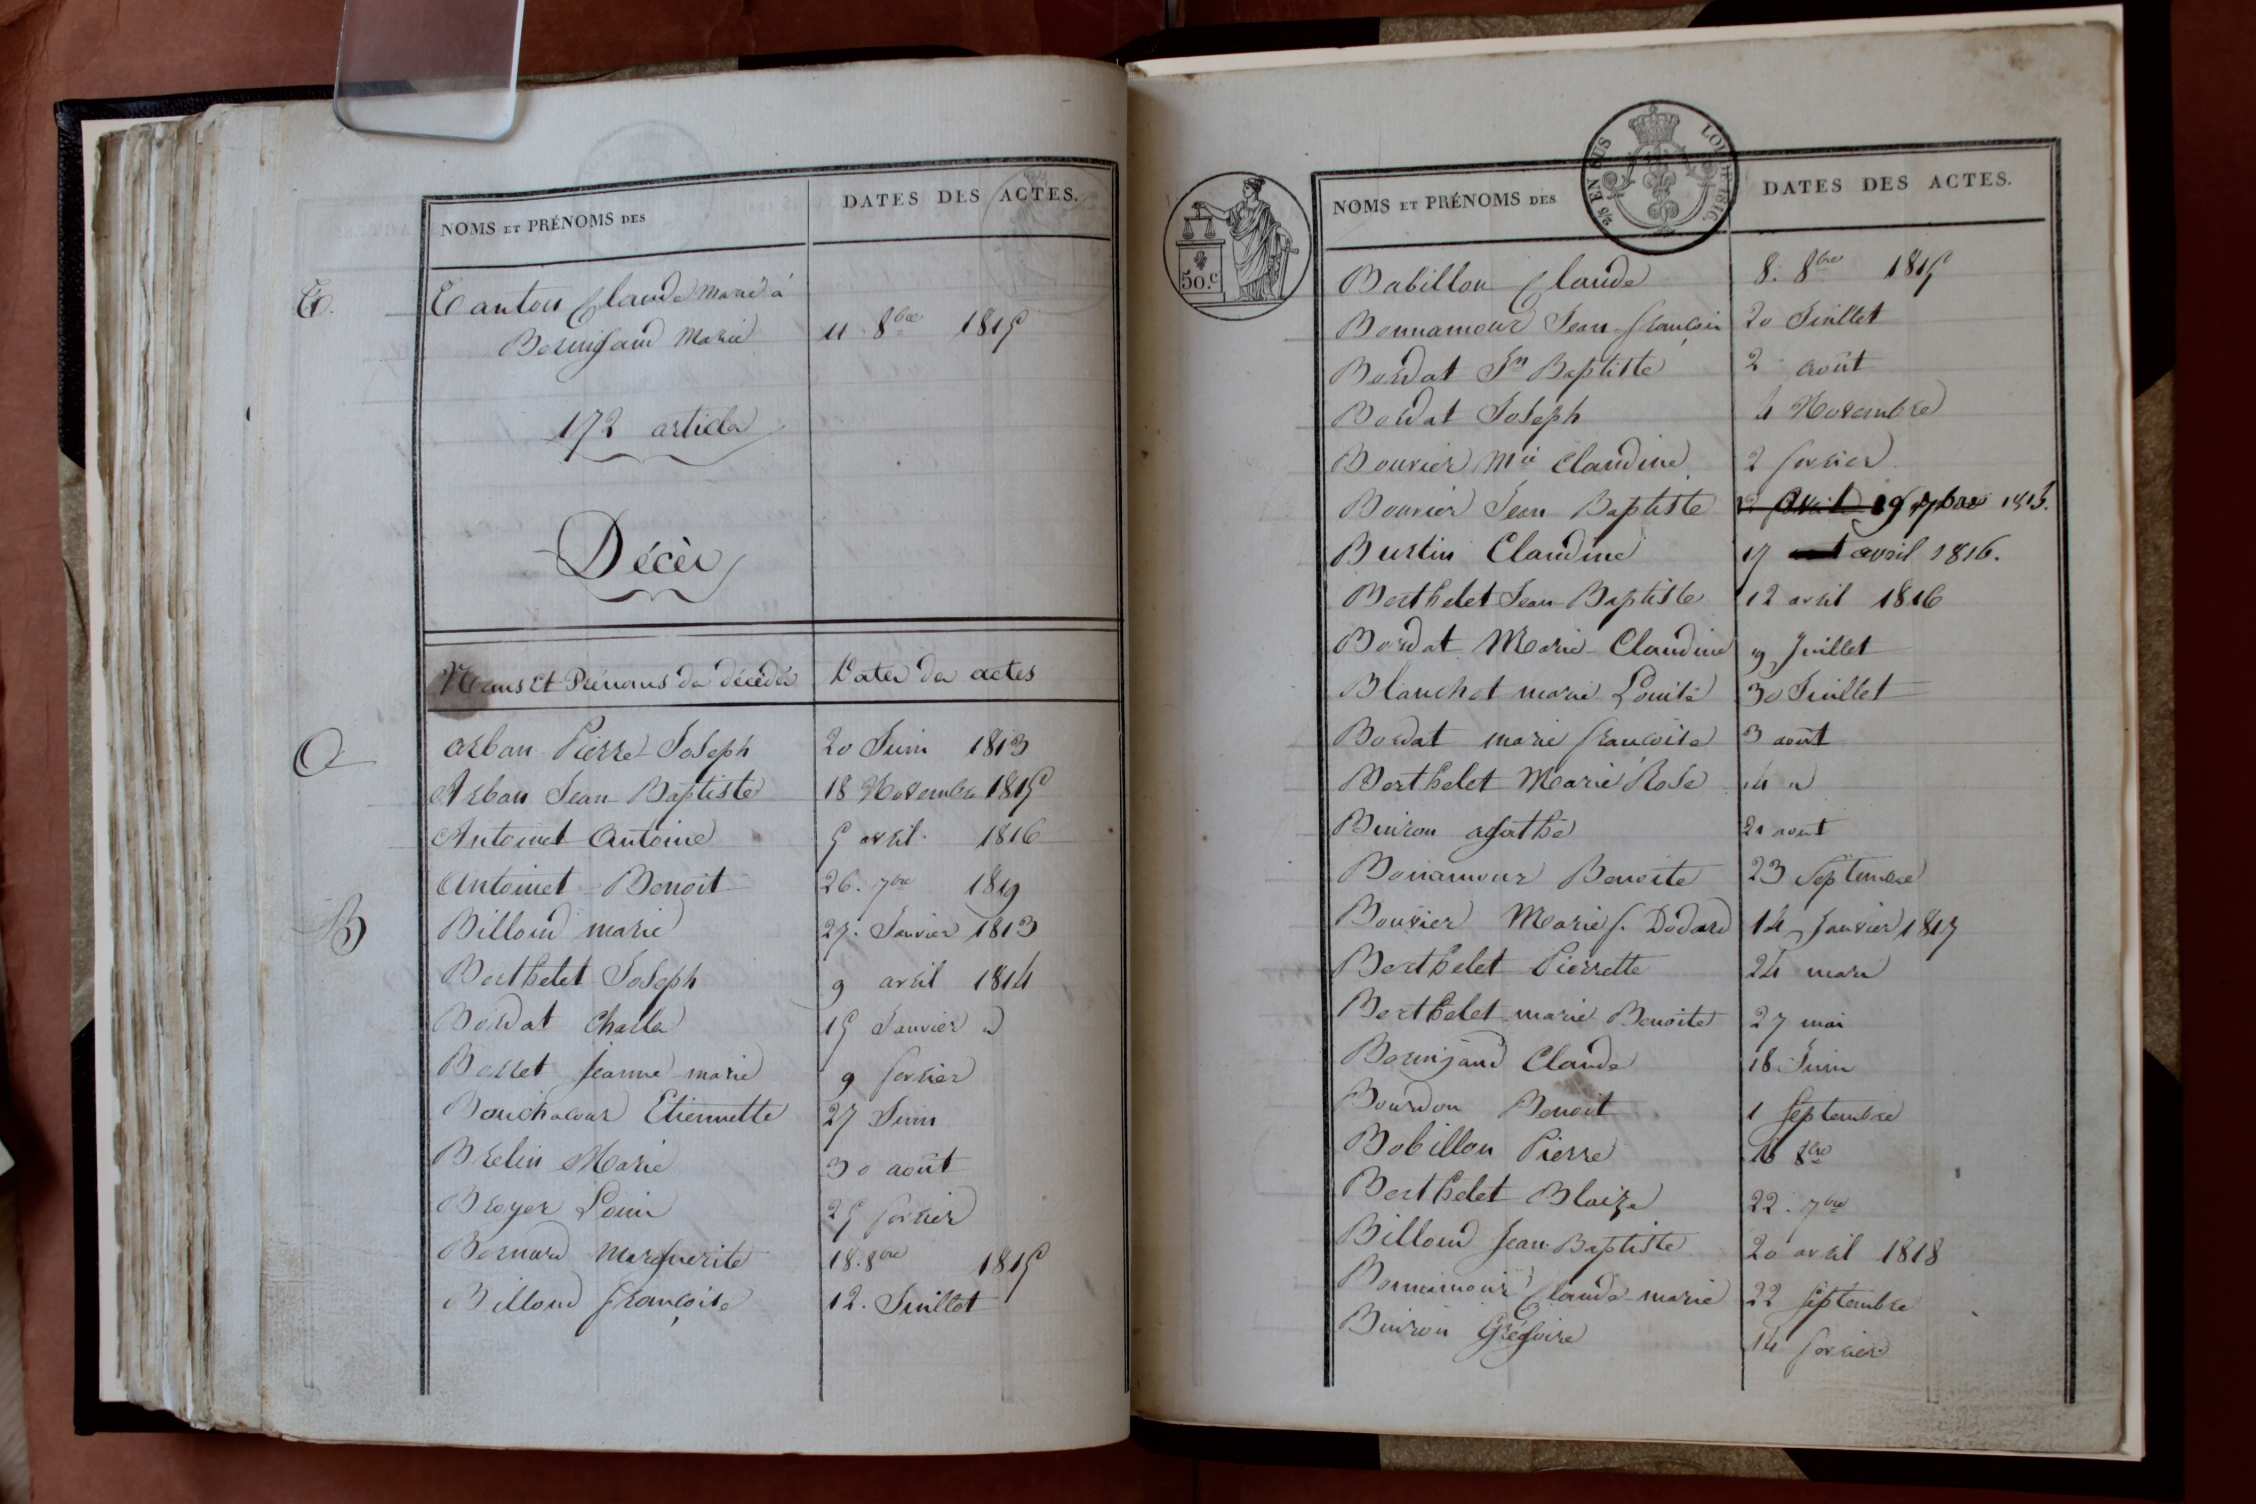 NOMS ET PRÉNOMS DES
DATES DES ACTES.
T.
Tantou Claude Marié à
Bermijaud Marie 11 8bre 1815
172 articles
Décès
Noms et Prénoms des décédés Dates des actes
A
Arban Pierre Joseph 20 Juin 1813
Arban Jean Baptiste 18 Novembre 1815
Antoinet Antoine 5 avril 1816
Antoinet Benoit 26. 7bre 1819
B
Billoud marie 27. Janvier 1813
Berthelet Joseph 9 avril 1814
Bordat Charles 15 Janvier d
Besset Jeanne marie 9 fevrier
Bouchacour Etiennette 27 Juin
Brelin Marie 30 août
Broyer Louis 25 fevrier
Bernard Marguerite 18. 8bre 1815
Billoud françoise 12. Juillet
50.c
25 EN SUS
LOI DE 1816.
NOMS ET PRÉNOMS DES
DATES DES ACTES.
Babillon Claude 8. 8bre 1815
Bonnamour Jean françois 20 Juillet
Bordat Jn Baptiste 2 août
Bordat Joseph 4 Novembre
Bouvier Mie Claudine 2 fevrier
Bouvier Jean Baptiste 29 7bre 1815.
Burtin Claudine 17 avril 1816.
Berthelet Jean Baptiste 12 avril 1816
Bordat Marie Claudine 9 Juillet
Blanchot marie Louise 30 Juillet
Bordat marie françoise 3 août
Berthelet Marie Rose 4 d
Buiron agathe 21 aout
Bonamour Benoite 23 Septembre
Bouvier Marie f. Dodard 14 Janvier 1817
Berthelet Pierrette 24 mars
Berthelet marie Benoite 27 mai
Bermijaud Claude 18 Juin
Bourdon Benoit 1 Septembre
Bobillon Pierre 16 8bre
Berthelet Blaize 22. 7bre
Billoud Jean Baptiste 20 avril 1818
Bonnamour Claude marie 22 septembre
Buiron Grégoire 14 fevrier